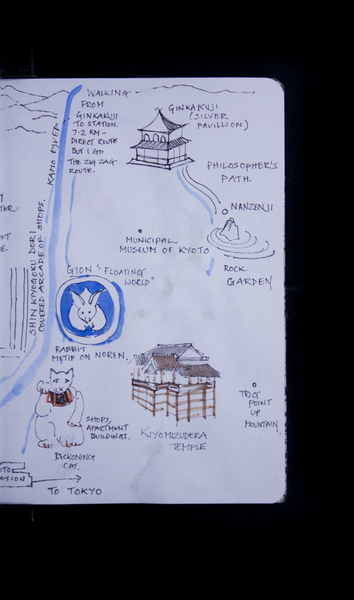 WALKING
FROM
GINKAKUJI
TO STATION.
7.2 KM -
DIRECT ROUTE
BUT I GO
THE ZIG ZAG
ROUTE.
GINKAKUJI
(SILVER
PAVILLION)
KAMO RIVER
PHILOSOPHER'S
PATH.
NANZENJI
MUNICIPAL
MUSEUM OF KYOTO
ROCK
GARDEN
SHIN KIYOGOKU DORI
COVERED ARCADE OF SHOPS.
GION "FLOATING
WORLD"
RABBIT
MOTIF ON NOREN.
SHOPS,
APARTMENT
BUILDINGS.
KIYOMIZUDERA
TEMPLE
TRIG
POINT
UP
MOUNTAIN
BECKONING
CAT.
TO TOKYO